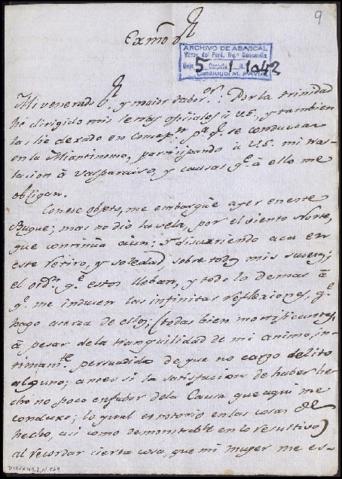 9
Exmo. Sr.
ARCHIVO DE ABASCAL
5 1 1042
Mi venerado Sr. y maior favor.or: Por la trinidad
he dirigido mis letras oficiales à VE; y tambien
las he dexado en Concep.n p.a q.e se conduzcan
en la Miantinomo, participando à VE. mi tras-
lacion à Valparaiso, y causas q.e à ello me
obligan.
Con ese objeto, me embarqué ayer en este
Buque; mas no dio la vela, por el viento Norte,
que continúa aun; y discurriendo aca en
este Retiro, y soledad sobre todos mis sucesos;
el ord.n q.e estos llevan, y todo lo demas à
q.e me inducen las infinitas reflexiones, q.e
hago acerca de ellos, (todas bien mortificantes,
à pesar de la tranquilidad de mi animo, in-
timam.te persuadido de que no cargo delito
alguno; a mas si la satisfacion de haber he-
cho no poco en fabor de la Causa que aqui me
conduxo; lo qual es notorio en las cosas de
hecho, asi como demonstrable en lo resultivo)
al recordar cierta cosa, que mi muger me es-